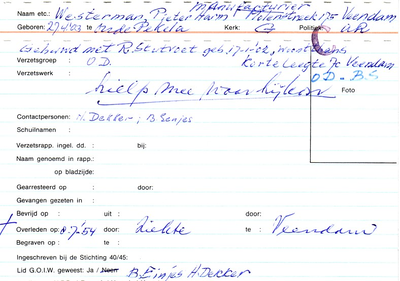 manufacturier
Naam etc.: Westerman, Pieter Harm Molenstreek 175 Veendam
Geboren: 27/4'03 te Oude Pekela Kerk: G Politiek: A.R.
Gehuwd met R. Stutvoet geb. 17-1-'02, woont thans
Verzetsgroep : O.D. Korteleegte 7c Veendam
Verzetswerk : O.D. - B.S.
hielp mee voor
Foto
Contactpersonen: H. Dekker; B. Eenjes
Schuilnaam :
Verzetsrapp. ingel. dd. : bij:
Naam genoemd in rapp.:
op bladzijde:
Gearresteerd op : door:
Gevangen gezeten in :
Bevrijd op : uit : door:
Overleden op : 8-7-'54 door: Ziekte te : Veendam
Begraven op : te :
Ingeschreven bij de Stichting 40/45:
Lid G.O.I.W. geweest: Ja / Neen B. Einjes H. Dekker